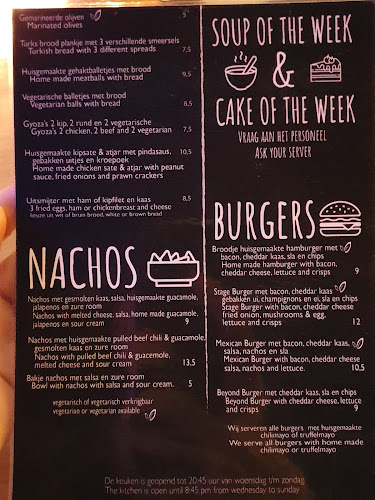 Gemarineerde olijven
Marinated olives 5
Turks brood plankje met 3 verschillende smeersels
Turkish bread with 3 different spreads 7,5
Huisgemaakte gehaktballetjes met brood
Home made meatballs with bread 9,5
Vegetarische balletjes met brood
Vegetarian balls with bread 8,5
Gyoza's 2 kip, 2 rund en 2 vegetarische
Gyoza's 2 chicken, 2 beef and 2 vegetarian 7,5
Huisgemaakte kipsate & atjar met pindasaus, 10,5
gebakken uitjes en kroepoek
Home made chicken sate & atjar with peanut
sauce, fried onions and prawn crackers
Uitsmijter met ham of kipfilet en kaas 8,5
3 fried eggs, ham or chickenbreast and cheese
keuze uit wit of bruin brood, white or brown bread
NACHOS
Nachos met gesmolten kaas, salsa, huisgemaakte guacamole,
jalapenos en zure room
Nachos with melted cheese, salsa, home made guacamole,
jalapenos and sour cream 9
Nachos met huisgemaakte pulled beef chili & guacamole,
gesmolten kaas en zure room
Nachos with pulled beef chili & guacemole,
melted cheese and sour cream 13,5
Bakje nachos met salsa en zure room
Bowl with nachos with salsa and sour cream. 5
vegetarisch of vegetarisch verkrijgbaar
vegetarian or vegetarian available
SOUP OF THE WEEK
&
CAKE OF THE WEEK
VRAAG AAN HET PERSONEEL
ASK YOUR SERVER
BURGERS
Broodje huisgemaakte hamburger met
bacon, cheddar kaas, sla en chips
Home made hamburger with bacon,
cheddar cheese, lettuce and crisps 9
Stage Burger met bacon, cheddar kaas
gebakken ui, champignons en ei, sla en chips
Stage Burger with bacon, cheddar cheese
fried onion, mushrooms & egg,
lettuce and crisps 12
Mexican Burger met bacon, cheddar kaas,
salsa, nachos en sla
Mexican Burger with bacon, cheddar cheese
salsa, nachos and lettuce. 10,5
Beyond Burger met cheddar kaas, sla en chips
Beyond Burger with cheddar cheese, lettuce
and crisps 9
Wij serveren alle burgers met huisgemaakte
chilimayo of truffelmayo
We serve all burgers with home made
chilimayo or truffelmayo
De keuken is geopend tot 20:45 uur van woensdag t/m zondag
The kitchen is open until 8:45 pm from wednesday to sunday